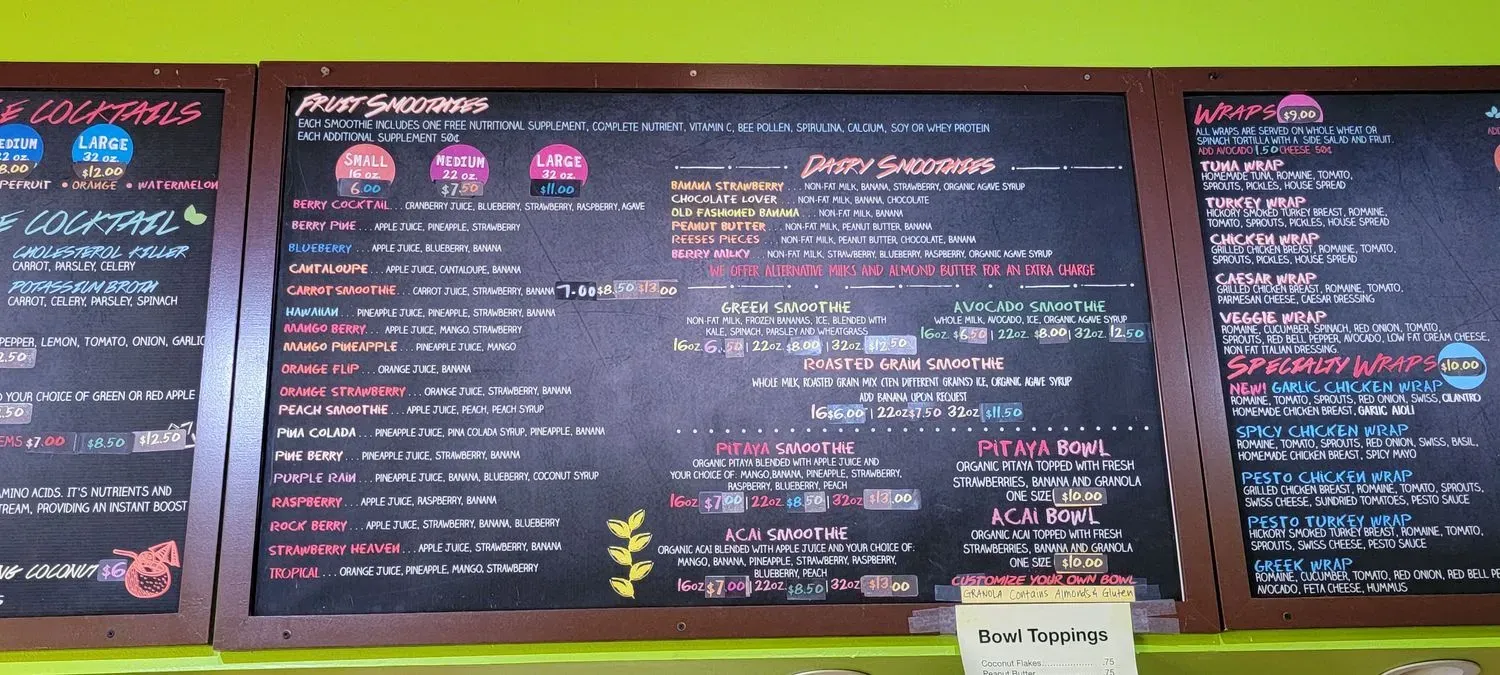 E COCKTAILS
EDIUM
22 oz.
8.00
LARGE
32 oz.
$12.00
PEFRUIT • ORANGE • WATERMELON
E COCKTAIL
CHOLESTEROL KILLER
CARROT, PARSLEY, CELERY
POTASSIUM BROTH
CARROT, CELERY, PARSLEY, SPINACH
PEPPER, LEMON, TOMATO, ONION, GARLIC
2.50
D YOUR CHOICE OF GREEN OR RED APPLE
.50
EMS $7.00 | $8.50 | $12.50
AMINO ACIDS. IT'S NUTRIENTS AND
TREAM, PROVIDING AN INSTANT BOOST
NG COCONUT $6
S
FRUIT SMOOTHIES
EACH SMOOTHIE INCLUDES ONE FREE NUTRITIONAL SUPPLEMENT, COMPLETE NUTRIENT, VITAMIN C, BEE POLLEN, SPIRULINA, CALCIUM, SOY OR WHEY PROTEIN
EACH ADDITIONAL SUPPLEMENT 50¢
SMALL
16 oz.
6.00
MEDIUM
22 oz.
$7.50
LARGE
32 oz.
$11.00
BERRY COCKTAIL... CRANBERRY JUICE, BLUEBERRY, STRAWBERRY, RASPBERRY, AGAVE
BERRY PINE... APPLE JUICE, PINEAPPLE, STRAWBERRY
BLUEBERRY... APPLE JUICE, BLUEBERRY, BANANA
CANTALOUPE... APPLE JUICE, CANTALOUPE, BANANA
CARROT SMOOTHIE... CARROT JUICE, STRAWBERRY, BANANA 7.00 $8.50 $13.00
HAWAIIAN... PINEAPPLE JUICE, PINEAPPLE, STRAWBERRY, BANANA
MANGO BERRY... APPLE JUICE, MANGO, STRAWBERRY
MANGO PINEAPPLE... PINEAPPLE JUICE, MANGO
ORANGE FLIP... ORANGE JUICE, BANANA
ORANGE STRAWBERRY... ORANGE JUICE, STRAWBERRY, BANANA
PEACH SMOOTHIE... APPLE JUICE, PEACH, PEACH SYRUP
PINA COLADA... PINEAPPLE JUICE, PINA COLADA SYRUP, PINEAPPLE, BANANA
PINE BERRY... PINEAPPLE JUICE, STRAWBERRY, BANANA
PURPLE RAIN... PINEAPPLE JUICE, BANANA, BLUEBERRY, COCONUT SYRUP
RASPBERRY... APPLE JUICE, RASPBERRY, BANANA
ROCK BERRY... APPLE JUICE, STRAWBERRY, BANANA, BLUEBERRY
STRAWBERRY HEAVEN... APPLE JUICE, STRAWBERRY, BANANA
TROPICAL... ORANGE JUICE, PINEAPPLE, MANGO, STRAWBERRY
DAIRY SMOOTHIES
BANANA STRAWBERRY... NON-FAT MILK, BANANA, STRAWBERRY, ORGANIC AGAVE SYRUP
CHOCOLATE LOVER... NON-FAT MILK, BANANA, CHOCOLATE
OLD FASHIONED BANANA... NON-FAT MILK, BANANA
PEANUT BUTTER... NON-FAT MILK, PEANUT BUTTER, BANANA
REESES PIECES... NON-FAT MILK, PEANUT BUTTER, CHOCOLATE, BANANA
BERRY MILKY... NON-FAT MILK, STRAWBERRY, BLUEBERRY, RASPBERRY, ORGANIC AGAVE SYRUP
WE OFFER ALTERNATIVE MILKS AND ALMOND BUTTER FOR AN EXTRA CHARGE
GREEN SMOOTHIE
NON-FAT MILK, FROZEN BANANAS, ICE, BLENDED WITH
KALE, SPINACH, PARSLEY AND WHEATGRASS
16oz 6.50 | 22oz $8.00 | 32oz $12.50
AVOCADO SMOOTHIE
WHOLE MILK, AVOCADO, ICE, ORGANIC AGAVE SYRUP
16oz $6.50 | 22oz. $8.00 | 32oz. 12.50
ROASTED GRAIN SMOOTHIE
WHOLE MILK, ROASTED GRAIN MIX (TEN DIFFERENT GRAINS) ICE, ORGANIC AGAVE SYRUP
ADD BANANA UPON REQUEST
16 $6.00 | 22oz $7.50 32oz $11.50
PITAYA SMOOTHIE
ORGANIC PITAYA BLENDED WITH APPLE JUICE AND
YOUR CHOICE OF: MANGO, BANANA, PINEAPPLE, STRAWBERRY,
RASPBERRY, BLUEBERRY, PEACH
16oz $7.00 | 22oz $8.50 | 32oz $13.00
ACAI SMOOTHIE
ORGANIC ACAI BLENDED WITH APPLE JUICE AND YOUR CHOICE OF:
MANGO, BANANA, PINEAPPLE, STRAWBERRY, RASPBERRY,
BLUEBERRY, PEACH
16oz $7.00 | 22oz $8.50 | 32oz $13.00
PITAYA BOWL
ORGANIC PITAYA TOPPED WITH FRESH
STRAWBERRIES, BANANA AND GRANOLA
ONE SIZE $10.00
ACAI BOWL
ORGANIC ACAI TOPPED WITH FRESH
STRAWBERRIES, BANANA AND GRANOLA
ONE SIZE $10.00
CUSTOMIZE YOUR OWN BOWL
GRANOLA Contains Almonds & Gluten
Bowl Toppings
Coconut Flakes.................. .75
Peanut Butter .75
WRAPS $9.00
ALL WRAPS ARE SERVED ON WHOLE WHEAT OR
SPINACH TORTILLA WITH A SIDE SALAD AND FRUIT.
ADD AVOCADO 1.50 CHEESE 50¢
TUNA WRAP
HOMEMADE TUNA, ROMAINE, TOMATO,
SPROUTS, PICKLES, HOUSE SPREAD
TURKEY WRAP
HICKORY SMOKED TURKEY BREAST, ROMAINE,
TOMATO, SPROUTS, PICKLES, HOUSE SPREAD
CHICKEN WRAP
GRILLED CHICKEN BREAST, ROMAINE, TOMATO,
SPROUTS, PICKLES, HOUSE SPREAD
CAESAR WRAP
GRILLED CHICKEN BREAST, ROMAINE, TOMATO,
PARMESAN CHEESE, CAESAR DRESSING
VEGGIE WRAP
ROMAINE, CUCUMBER, SPINACH, RED ONION, TOMATO,
SPROUTS, RED BELL PEPPER, AVOCADO, LOW FAT CREAM CHEESE,
NON FAT ITALIAN DRESSING.
SPECIALTY WRAPS $10.00
NEW! GARLIC CHICKEN WRAP
ROMAINE, TOMATO, SPROUTS, RED ONION, SWISS, CILANTRO
HOMEMADE CHICKEN BREAST, GARLIC AIOLI
SPICY CHICKEN WRAP
ROMAINE, TOMATO, SPROUTS, RED ONION, SWISS, BASIL,
HOMEMADE CHICKEN BREAST, SPICY MAYO
PESTO CHICKEN WRAP
GRILLED CHICKEN BREAST, ROMAINE, TOMATO, SPROUTS,
SWISS CHEESE, SUNDRIED TOMATOES, PESTO SAUCE
PESTO TURKEY WRAP
HICKORY SMOKED TURKEY BREAST, ROMAINE, TOMATO,
SPROUTS, SWISS CHEESE, PESTO SAUCE
GREEK WRAP
ROMAINE, CUCUMBER, TOMATO, RED ONION, RED BELL PE
AVOCADO, FETA CHEESE, HUMMUS